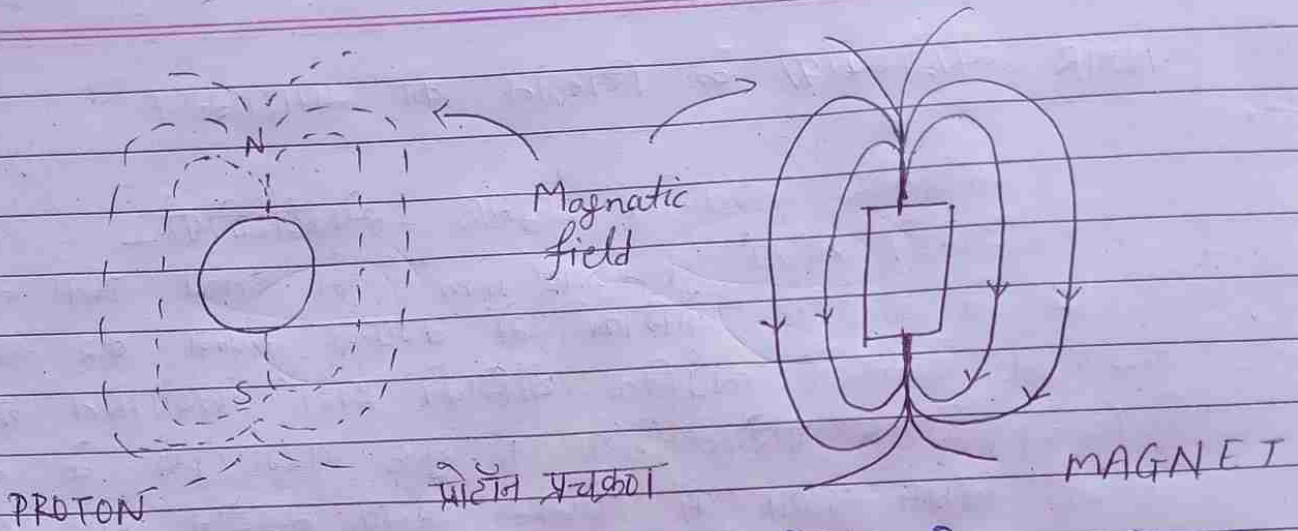 N
Magnatic
field
S
PROTON
प्रोटॉन प्रचक्रण
MAGNET